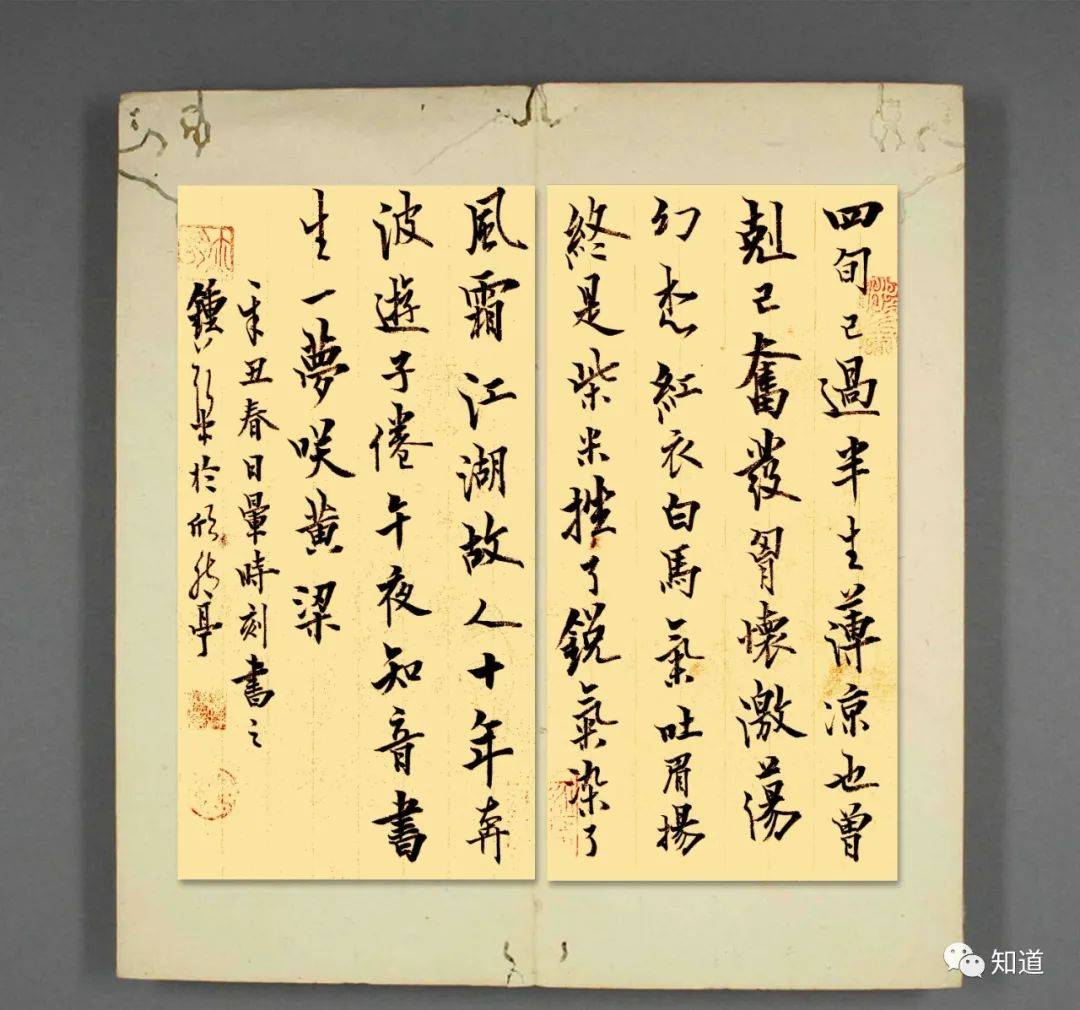 四旬已過半生薄凉也曾
剋己奮發胷懷激蕩
幻紅衣白馬氣吐眉揚
終是柴米挫了銳氣染了
風霜江湖故人十年奔
波遊子倦午夜知音書
生一夢咲黄梁
辛丑春日暈時刻書之
於欣然亭
知道